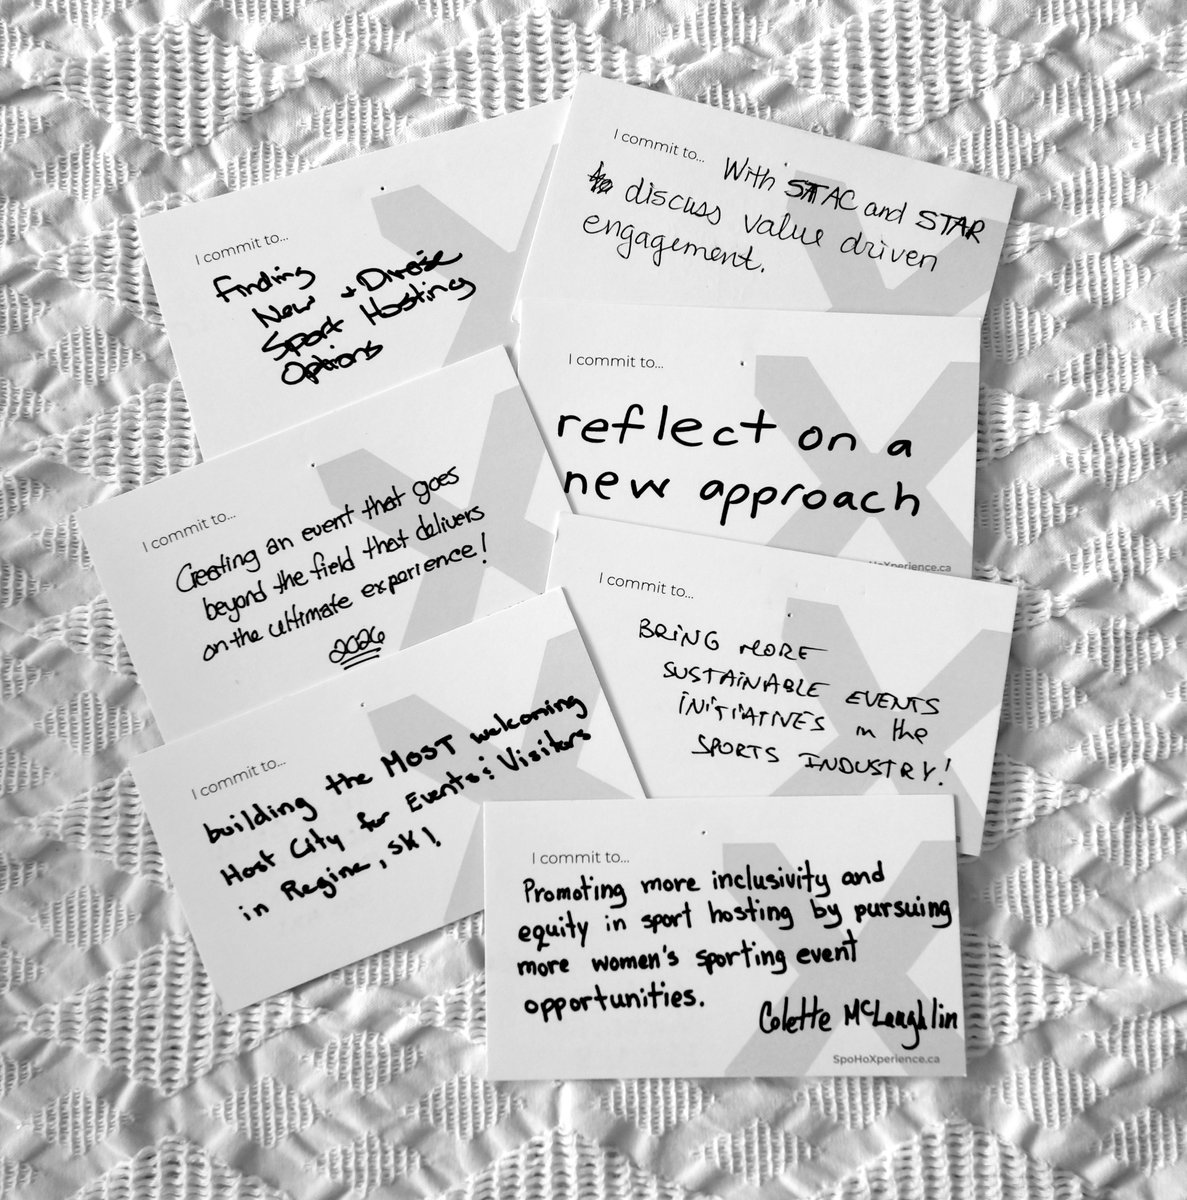 I commit to...
Finding
New + Diverse
Sport Hosting
Options
I commit to... With STAC and STAR
to discuss value driven
engagement.
I commit to...
reflect on a
new approach
HoXperience.ca
I commit to...
Creating an event that goes
beyond the field that delivers
on the ultimate experience!
2026
I commit to...
BRING MORE
SUSTAINABLE EVENTS
INITIATIVES in the
SPORTS INDUSTRY!
I commit to...
building the MOST welcoming
Host City for Events & Visitors
in Regina, SK!
I commit to...
Promoting more inclusivity and
equity in sport hosting by pursuing
more women's sporting event
opportunities.
Colette McLaughlin
SpoHoXperience.ca